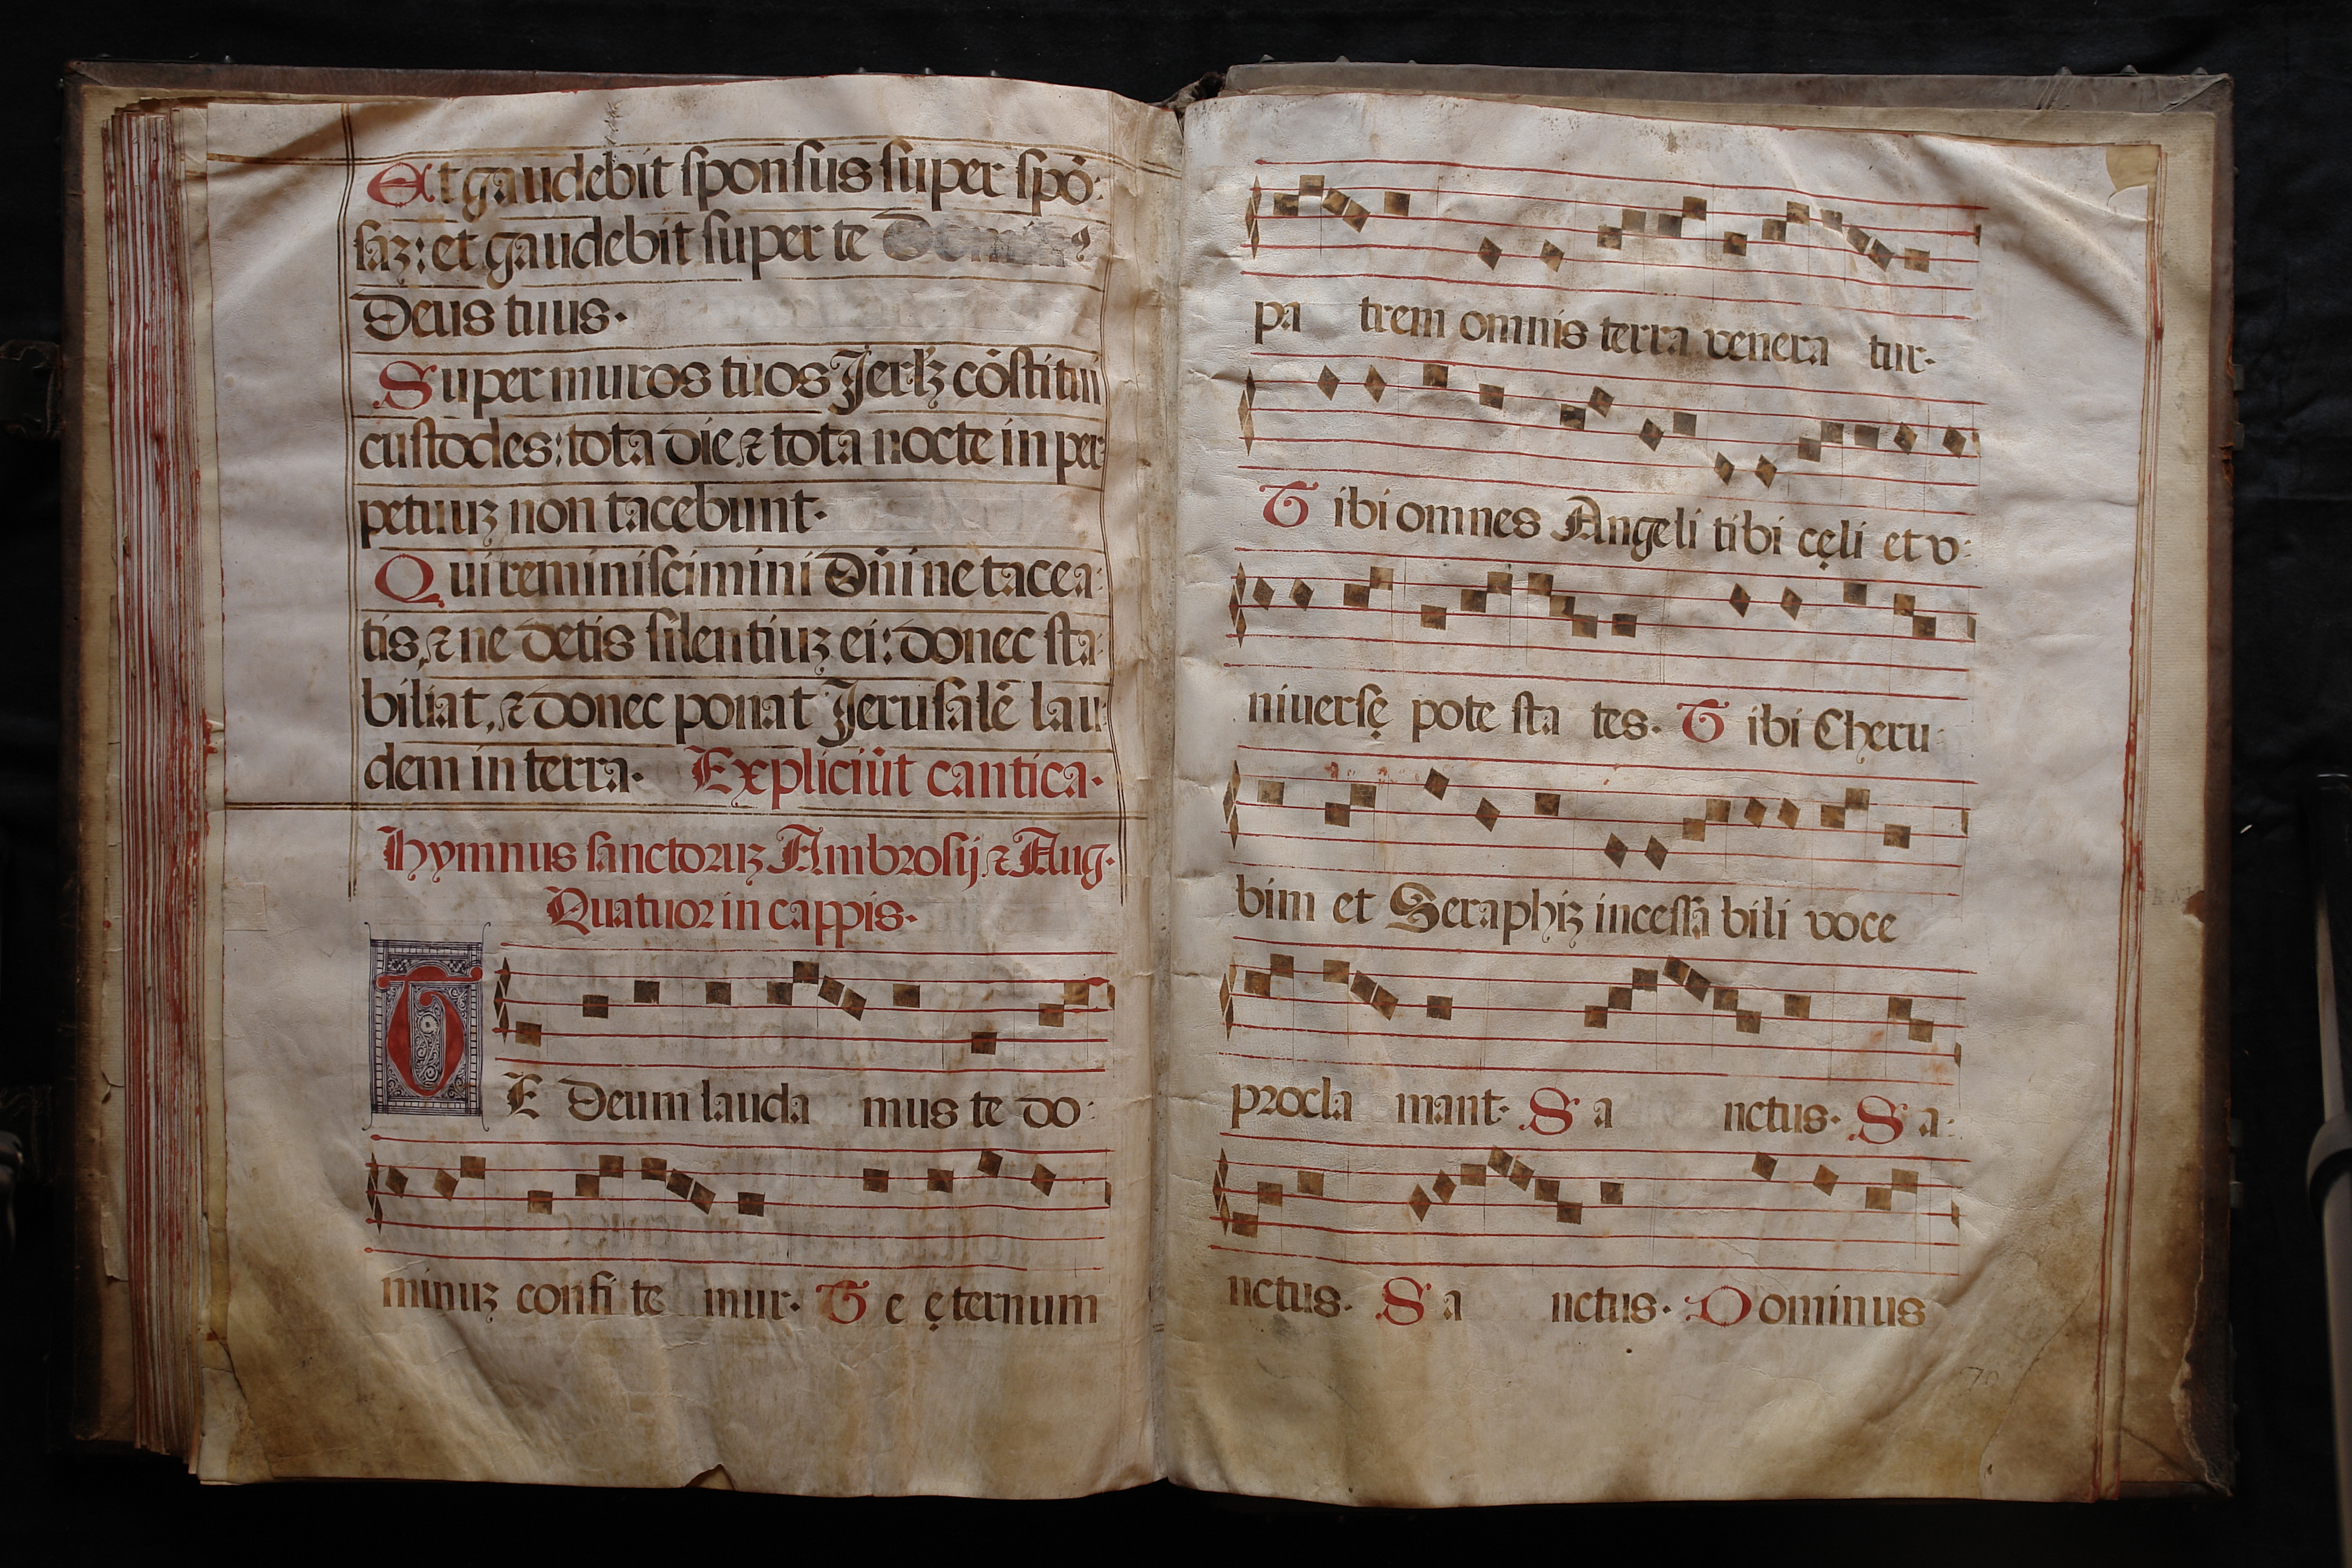 Et gaudebit sponsus super spō:
saꝫ: et gaudebit super te
Deus tuus.
Super muros tuos Jerlꝫ cōstitui
custodes: tota die, ⁊ tota nocte in per
petuuꝫ non tacebunt.
Qui reminiscimini Dn̄i ne tacea:
tis, ⁊ ne detis silentiuꝫ ei: donec sta:
biliat, ⁊ donec ponat Jerusalē lau:
dem in terra. Expliciūt cantica.
Hymnus sanctoruꝫ Ambrosij, ⁊ Aug.
Quatuor in cappis.
TE Deum lauda mus te do:
minuꝫ confi te mur. Te ęternum
pa trem omnis terra venera tur.
Tibi omnes Angeli tibi cęli et v:
niuersę pote sta tes. Tibi Cheru
bim et Seraphiꝫ incessa bili voce
procla mant. Sa nctus. Sa:
nctus. Sa nctus. Dominus